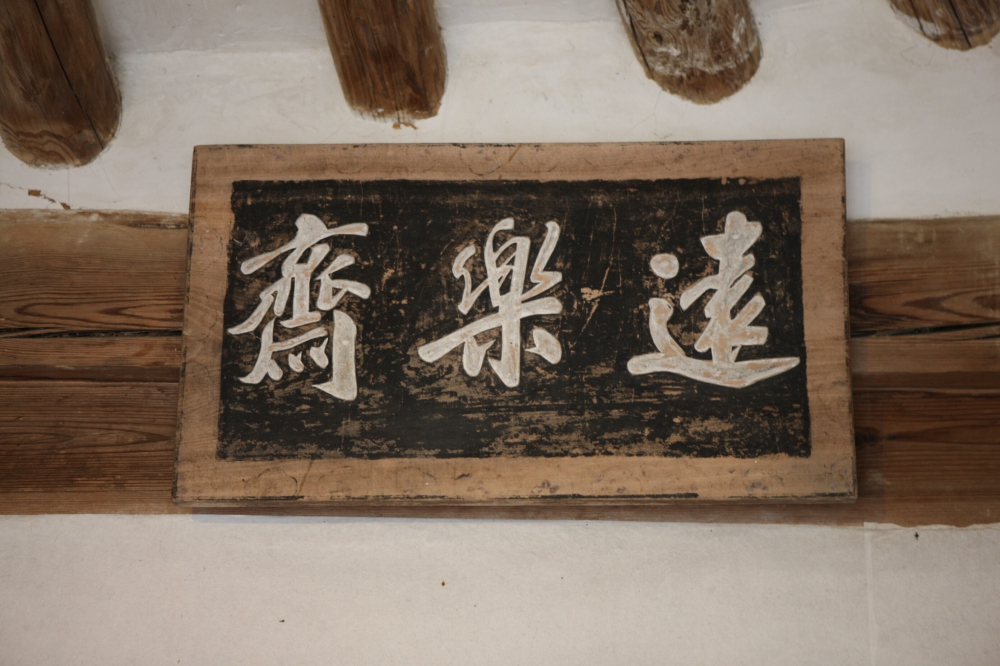 遠樂齋